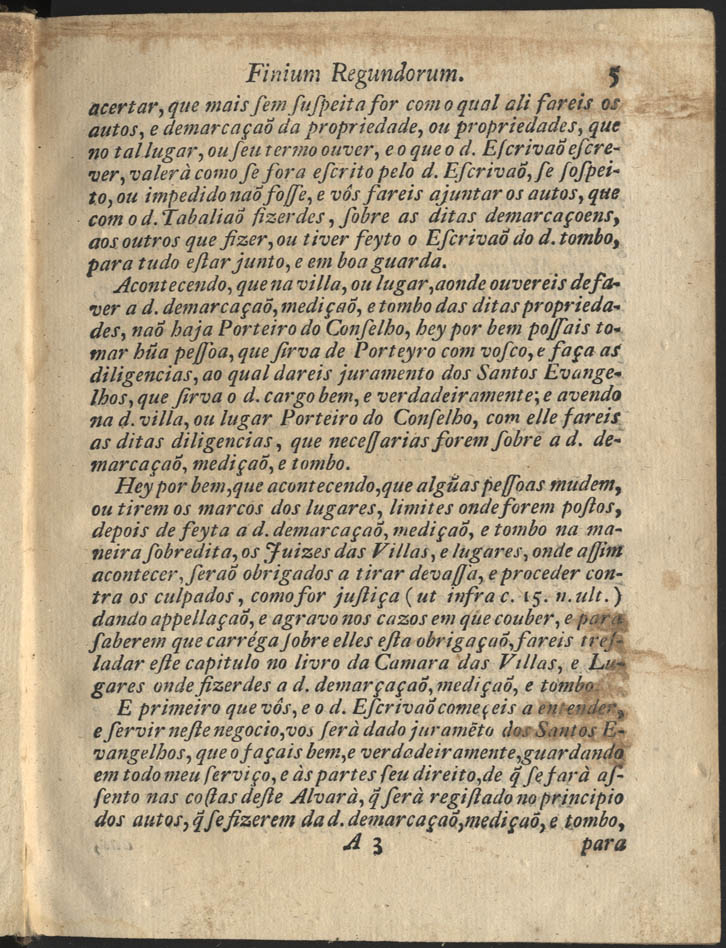 Finium Regundorum. 5
acertar, que mais ſem ſuſpeita for com o qual ali fareis os
autos, e demarcaçaõ da propriedade, ou propriedades, que
no tal lugar, ou ſeu termo ouver, e o que o d. Eſcrivaõ eſcre-
ver, valerà como ſe fora eſcrito pelo d. Eſcrivaõ, ſe ſoſpei-
to, ou impedido naõ foſſe, e vós fareis ajuntar os autos, que
com o d. Tabaliaõ fizerdes, ſobre as ditas demarcaçoens,
aos outros que fizer, ou tiver feyto o Eſcrivaõ do d. tombo,
para tudo eſtar junto, e em boa guarda.
Acontecendo, que na villa, ou lugar, aonde ouvereis defa-
ver a d. demarcaçaõ, mediçaõ, e tombo das ditas proprieda-
des, naõ haja Porteiro do Conſelho, hey por bem poſſais to-
mar hũa peſſoa, que ſirva de Porteyro com voſco, e faça as
diligencias, ao qual dareis juramento dos Santos Evange-
lhos, que ſirva o d. cargo bem, e verdadeiramente; e avendo
na d. villa, ou lugar Porteiro do Conſelho, com elle fareis
as ditas diligencias, que neceſſarias forem ſobre a d. de-
marcaçaõ, mediçaõ, e tombo.
Hey por bem, que acontecendo, que algũas peſſoas mudem,
ou tirem os marcos dos lugares, limites onde forem poſtos,
depois de feyta a d. demarcaçaõ, mediçaõ, e tombo na ma-
neira ſobredita, os Juizes das Villas, e lugares, onde aſſim
acontecer, ſeraõ obrigados a tirar devaſſa, e proceder con-
tra os culpados, como for juſtiça (ut infra c. 15. n. ult.)
dando appellaçaõ, e agravo nos cazos em que couber, e para
ſaberem que carréga ſobre elles eſta obrigaçaõ, fareis treſ-
ladar eſte capitulo no livro da Camara das Villas, e Lu-
gares onde fizerdes a d. demarçaçaõ, mediçaõ, e tombo.
E primeiro que vós, e o d. Eſcrivaõ começeis a entender,
e ſervir neſte negocio, vos ſerà dado juramẽto dos Santos E-
vangelhos, que o façais bem, e verdadeiramente, guardando
em todo meu ſerviço, e às partes ſeu direito, de q̃ ſe farà aſ-
ſento nas coſtas deſte Alvarà, q̃ ſerà regiſtado no principio
dos autos, q̃ ſe fizerem da d. demarcaçaõ, mediçaõ, e tombo,
A 3 para